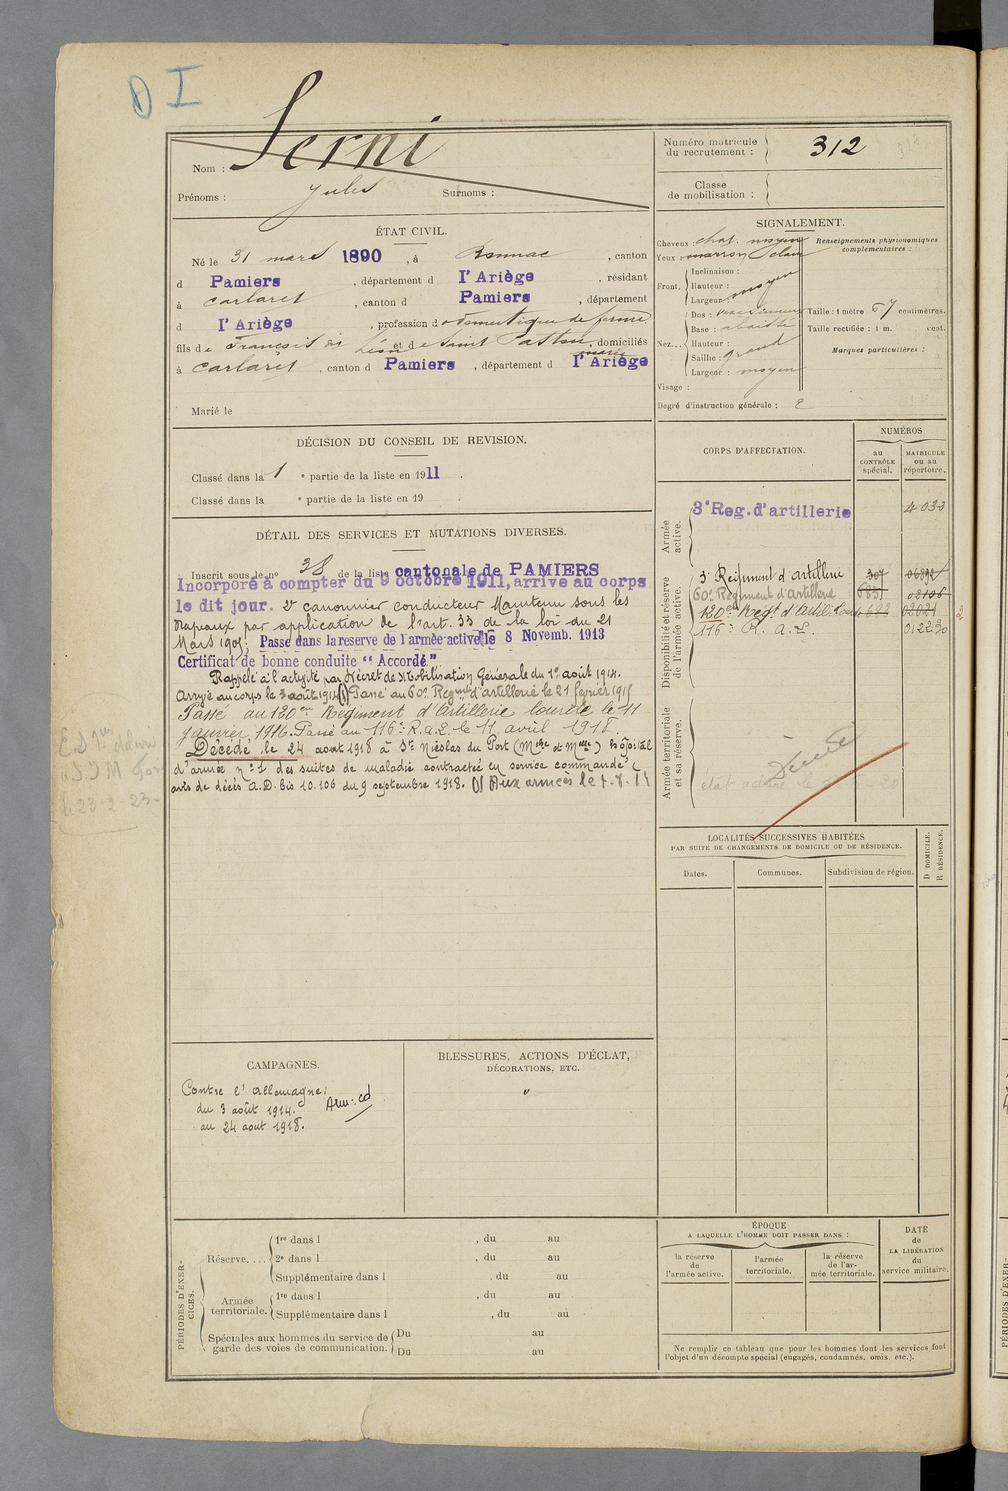 D I
Serni
Nom :
Prénoms : Jules Surnoms :
Numéro matricule du recrutement : 312
Classe de mobilisation :
ÉTAT CIVIL.
Né le 31 mars 1890, à Bonnac, canton
d Pamiers, département d l'Ariège, résidant
à Carlaret, canton d Pamiers, département
d l'Ariège, profession d domestique de ferme
fils de François et de Saint Pastou, domiciliés
à Carlaret, canton d Pamiers, département d l'Ariège
Marié le
SIGNALEMENT.
Cheveux chat. moyen
Yeux : marron clair
Renseignements physionomiques complémentaires :
Front. Inclinaison :
Hauteur :
Largeur moyen
Nez... Dos :
Base : abaissée
Hauteur :
Saillie : grand
Largeur : moyen
Taille : 1 mètre 67 centimètres.
Taille rectifiée : 1 m. cent.
Marques particulières :
Visage :
Degré d'instruction générale : 2
DÉCISION DU CONSEIL DE REVISION.
Classé dans la 1 e partie de la liste en 1911 .
Classé dans la e partie de la liste en 19 .
DÉTAIL DES SERVICES ET MUTATIONS DIVERSES.
Inscrit sous le no 38 de la liste cantonale de PAMIERS
Incorporé à compter du 9 octobre 1911, arrivé au corps
le dit jour. 2e canonnier conducteur Maintenu sous les
drapeaux par application de l'art. 33 de la loi du 21
Mars 1905; Passé dans la reserve de l'armée active le 8 Novemb. 1913
Certificat de bonne conduite "Accordé."
Rappelé à l'activité par Décret de Mobilisation Générale du 1er août 1914.
Arrivé au corps le 3 août 1914 (1) Passé au 60e Regment d'artillerie le 21 février 1915
Passé au 120e Régiment d'Artillerie lourde le 11
janvier 1916. Passé au 116e R.a.L. le 11 avril 1918.
Décédé le 24 aout 1918 à St Nicolas du Port (Mthe et Mlle) hôpital
d'armée no 1 des suites de maladie contractée en service commandé (
avis de décès A.D. Bis 10.106 du 9 septembre 1918. (1) Aux armées le
CORPS D'AFFECTATION.
NUMÉROS
au CONTRÔLE spécial.
MATRICULE ou au répertoire.
Armée active.
3e Reg. d'artillerie 4033
Disponibilité et réserve de l'armée active.
3e Régiment d'Artillerie 307
60e Regiment d'artillerie 02106
120e Regt d'Artillerie Lourde 02021
116e R. a. L. 012230
Armée territoriale et sa réserve.
Décédé
LOCALITÉS SUCCESSIVES HABITÉES
PAR SUITE DE CHANGEMENTS DE DOMICILE OU DE RÉSIDENCE.
Dates. Communes. Subdivision de région.
D DOMICILE.
R RÉSIDENCE.
CAMPAGNES.
Contre l'Allemagne:
du 3 août 1914.
au 24 aout 1918.
BLESSURES, ACTIONS D'ÉCLAT,
DÉCORATIONS, ETC.
"
PÉRIODES D'EXERCICES.
Réserve.... 1re dans l , du au
2e dans l , du au
Supplémentaire dans l , du au
Armée territoriale. 1re dans l , du au
Supplémentaire dans l , du au
Spéciales aux hommes du service de garde des voies de communication. Du au
Du au
ÉPOQUE
A LAQUELLE L'HOMME DOIT PASSER DANS :
la réserve de l'armée active.
l'armée territoriale.
la réserve de l'armée territoriale.
DATE de LA LIBÉRATION du service militaire.
Ne remplir ce tableau que pour les hommes dont les services font
l'objet d'un décompte spécial (engagés, condamnés, omis, etc.).